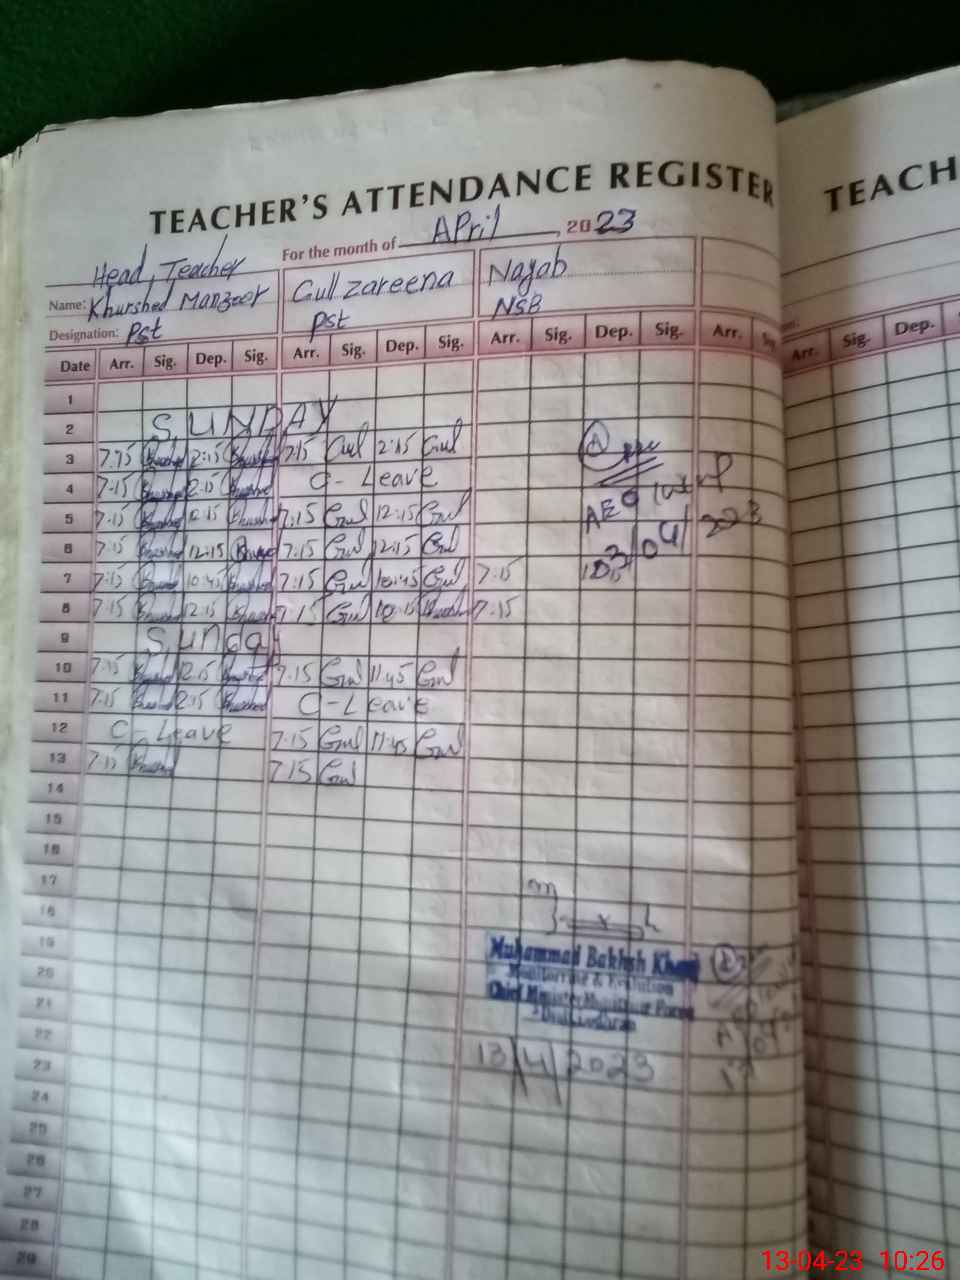 TEACHER'S ATTENDANCE REGISTER TEACH
For the month of APril, 2023
Head, Teacher
Name: Khurshed Manzoor Gull zareena Nayab
Designation: Pst Pst NSB
Date Arr. Sig. Dep. Sig. Arr. Sig. Dep. Sig. Arr. Sig. Dep. Sig. Arr. Arr. Sig. Dep.
1
2 SUNDAY
3 7:15 2:15 7:15 Gul 2:15 Gul
4 7:15 2:15 C-Leave
5 7:15 12:15 7:15 Gul 12:15 Gul
6 7:15 12:15 7:15 Gul 12:15 Gul
7 7:15 10:45 7:15 Gul 10:45 Gul 7:15
8 7:15 12:15 7:15 Gul 10:15 7:15
9 Sunday
10 7:15 12:15 7:15 Gul 11:45 Gul
11 7:15 2:15 C-Leave
12 C-Leave 7:15 Gul 11:45 Gul
13 7:15 7:15 Gul
14
15
16
17
18
19
20
21
22
23
24
25
26
27
28
29
AEO
Muhammad Bakhsh Khan
Monitoring & Evaluation
Chief Minister Monitoring Force
13/4/2023
13-04-23 10:26